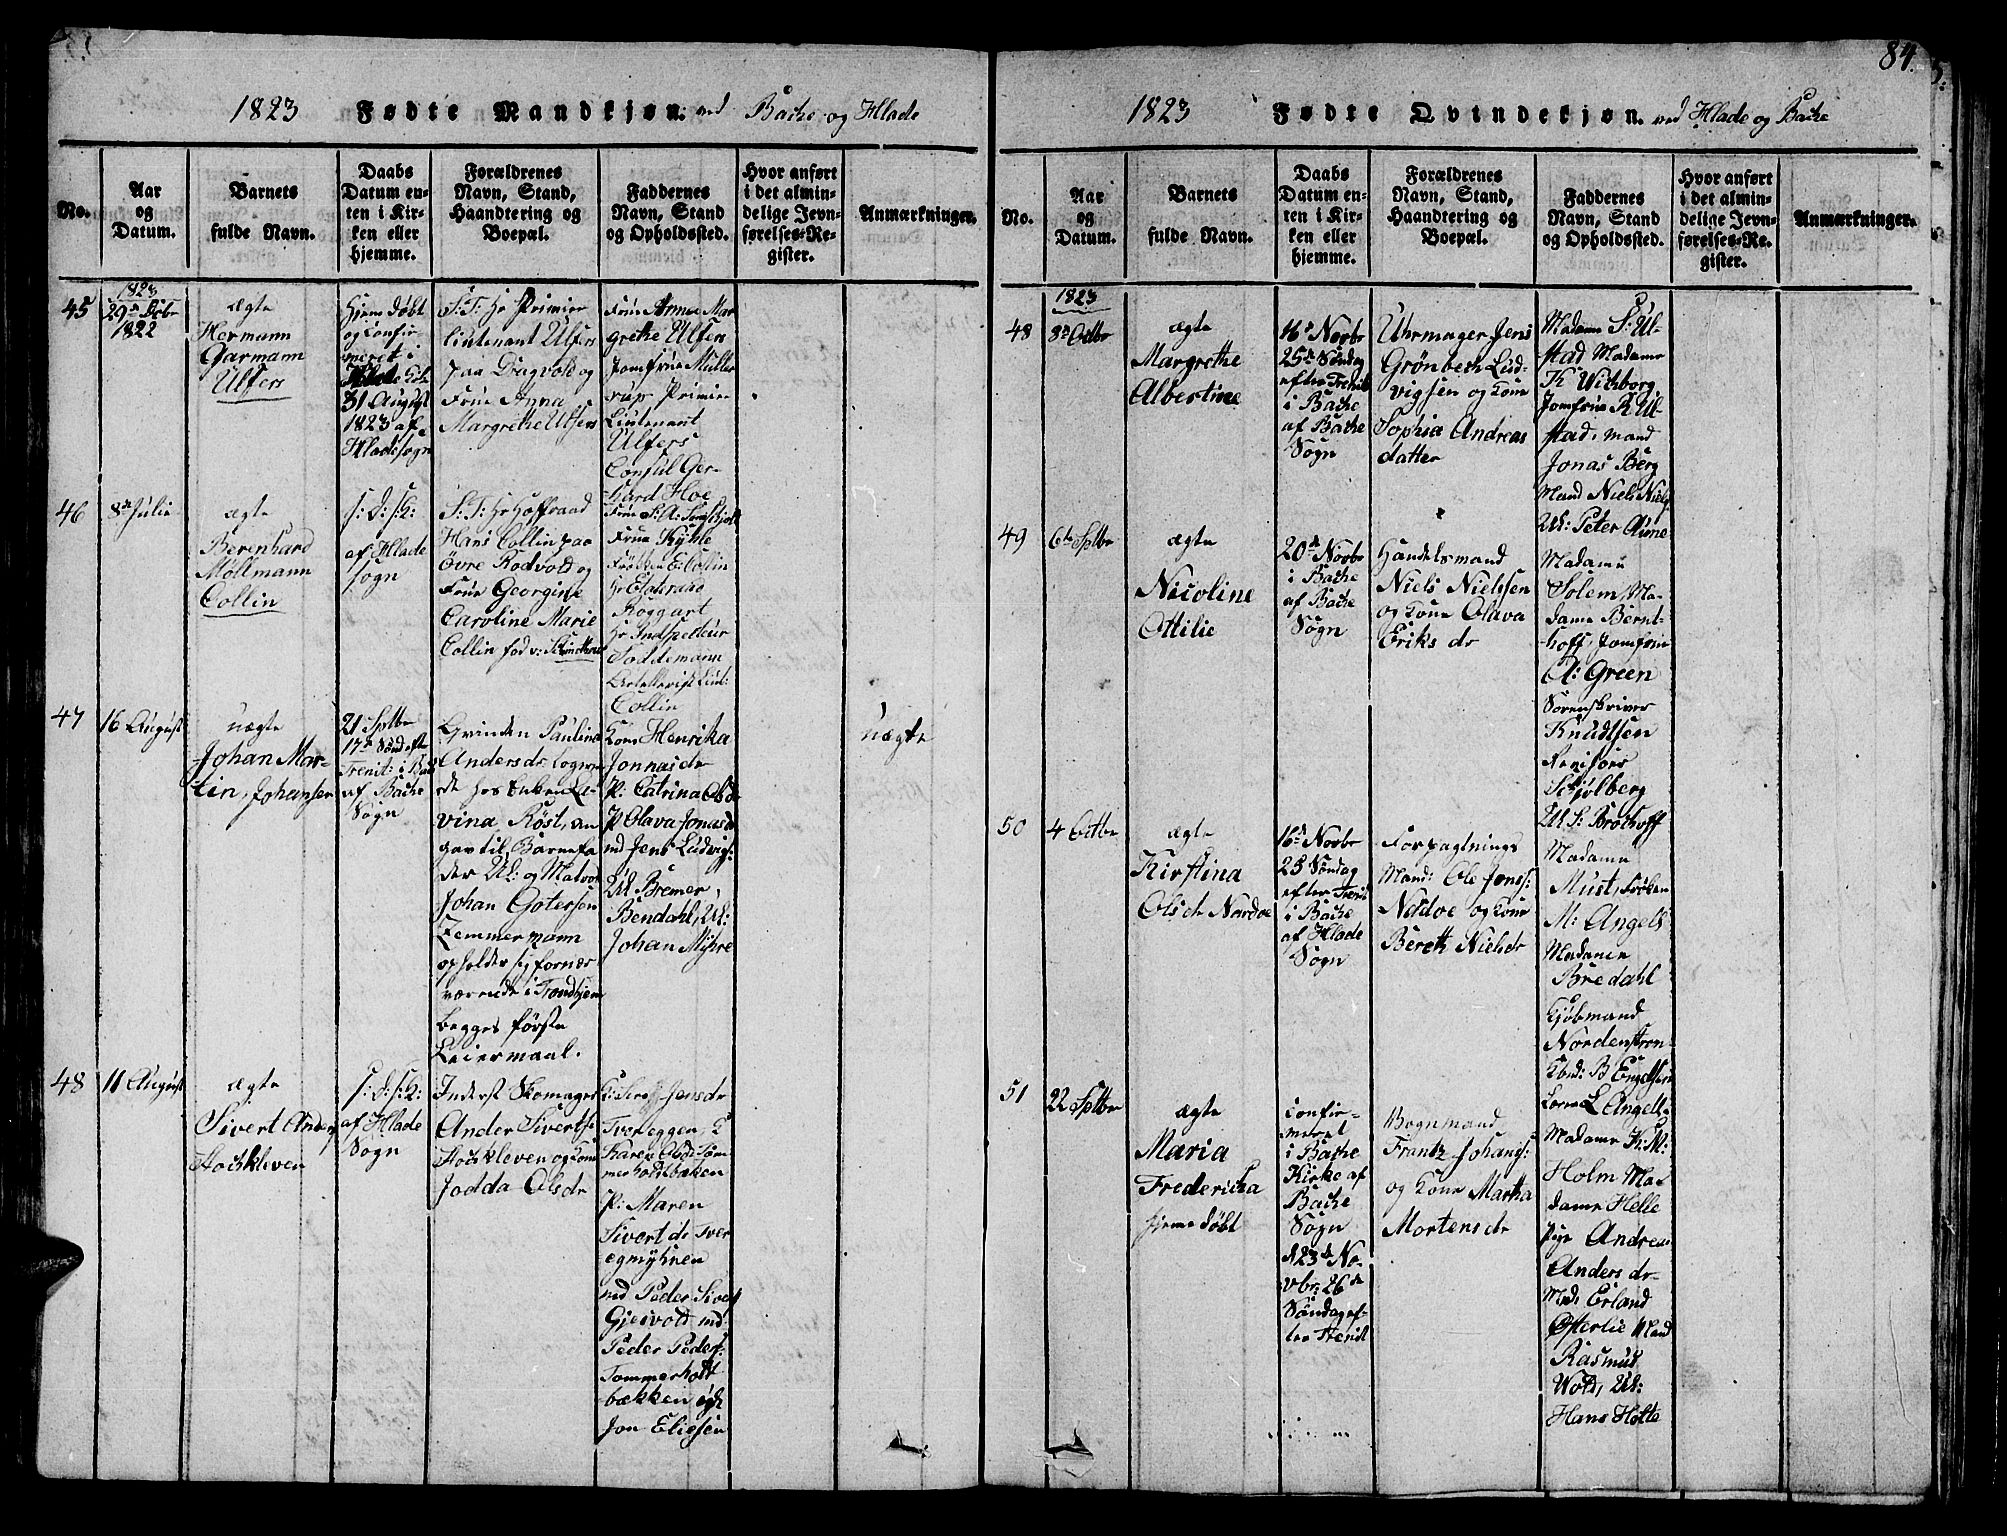 84.
1823 Fødte Mandkjøn. ved Bache og Hlade
No.
Aar
og
Datum.
Barnets
fulde Navn.
Daabs
Datum en-
ten i Kir-
ken eller
hjemme.
Forældrenes
Navn, Stand,
Haandtering og
Boepæl.
Faddernes
Navn, Stand
og Opholdssted.
Hvor anført
i det almin-
delige Jevn-
førelses-Re-
gister.
Anmærkninger.
45
1823
1822
ægte
Hermann
Garmann
Ulfers
hjem døbt
og confir-
meret i
31 August
1823 af
Hlade sogn
S: T: hr Primier
Lieutenant Ulfers
paa Dragvold og
Frue Anna
Margrethe Ulfers
Frue Anna Mar
grethe Ulfers
Jomfrue Müller
Primier
Lieutenant
Ulfers
Consul Ger-
hard Hoe
46
8de Julii
ægte
Berenhard
Möllmann
Collin
s: d: s: k:
af Hlade
sogn
S: T: hr Hoffraad
Hans Collin paa
övre Rodvold og
Frue Georgine
Caroline Marie
Collin fød v:
Frue
Frøken E: Collin
hr Etatsraad
Roggart
hr Indspecteur
Toddemann
Collin
47
16 August
uægte
Johan Mar-
tin, Johansen
21 Sptbr
17de Sönd efter
Trenit: i
af Bache
Sogn
Qvinden Paulina
Andersdr
de hos Enken Le-
vina Röst, an
gav til Barnefa
der Uk: og
Johan
Zemmermann
opholder sig fornær
værende i Trondhjem
begges første
Leiermaal.
Kone Henrika
Jonnasdr
P: Catrina Olsdr
P Olava Jonasdr
md Jens Ludvigs:
Uk Bremer,
Bendahl, Uk:
Johan Myhre
uægte
48
11 August
ægte
Sivert Anders
Stochkleven
s: d: s: k:
af Hlade
Sogn
Inderst Skomager
Ander Siverts:
Stochkleven og Kone
Jodda Olsdr
Jensdr
Tvereggen, K
Karen Olsdr Töm
merholdtbaken
P: Maren
Sivert dr Tver
egmyhren
md Peder Sivert
Gjeisvold md
Peder Peders:
Tommerholt
bækken
Jon Eliesen
1823 Fødte Qvindekjøn. ved Hlade og Bache
No.
Aar
og
Datum.
Barnets
fulde Navn.
Daabs
Datum en-
ten i Kir-
ken eller
hjemme.
Forældrenes
Navn, Stand,
Haandtering og
Boepæl.
Faddernes
Navn, Stand
og Opholdssted.
Hvor anført
i det almin-
delige Jevn-
førelses-Re-
gister.
Anmærkninger.
1823
48
Octbr
ægte
Margrethe
Albertine
16de Novbr
25de Söndag
efter Trenit
i Bache
af Bache
Sogn
Uhrmager Jens
Grönbech Lud-
vigsen og Kone
Sophia Andreas
datter
Madame S: Ul-
stad Madame
K Wichborg
Jomfrue K Ul-
stad, mand
Jonas Berg
Mand Niels Niels
Uk: Peter Aune
49
6te Sptbr
ægte
Nicoline
Ottilie
20de Novbr
i Bache
af Bache
Sogn
Handelsmand
Niels Nielssen
og Kone Olava
Eriks dr
Madame
Solem, Ma-
dame Bernt-
hoff, Jomfrue
A: Green
Sorenskriver
Knudtsen
Revisor
Schjölberg
Uk S: Brothoff
50
4 Octbr
ægte
Kirstina
Olsdr Nordoe
16de Novbr
25 Söndag
efter Trenit
i Bache
af Hlade
Sogn
Forpagtnings
Mand: Ole Jons:
og Kone
Bereth Nielsdr
Madame
Must, Frøken
M: Angell
Madame
Bredahl
Kjøbmand
Nordenstrøm
B Engelsen
L Angell
51
22 Sptbr
ægte
Maria
Fredericha
hjeme döbt
confir-
meret
i Bache
Kirke af
Bache
Sogn
d 23de No-
vbr: 26de
Söndag ef-
ter Trenit
Bognmand
Frantz Johans:
og Kone Martha
Mortensdr
Madame K: M:
Holm Ma-
dame Helle
Pige Andrea
Anders dr
Md: Erland
Østerlie Mand
Rasmus
Wold, Uk:
Hans Holte